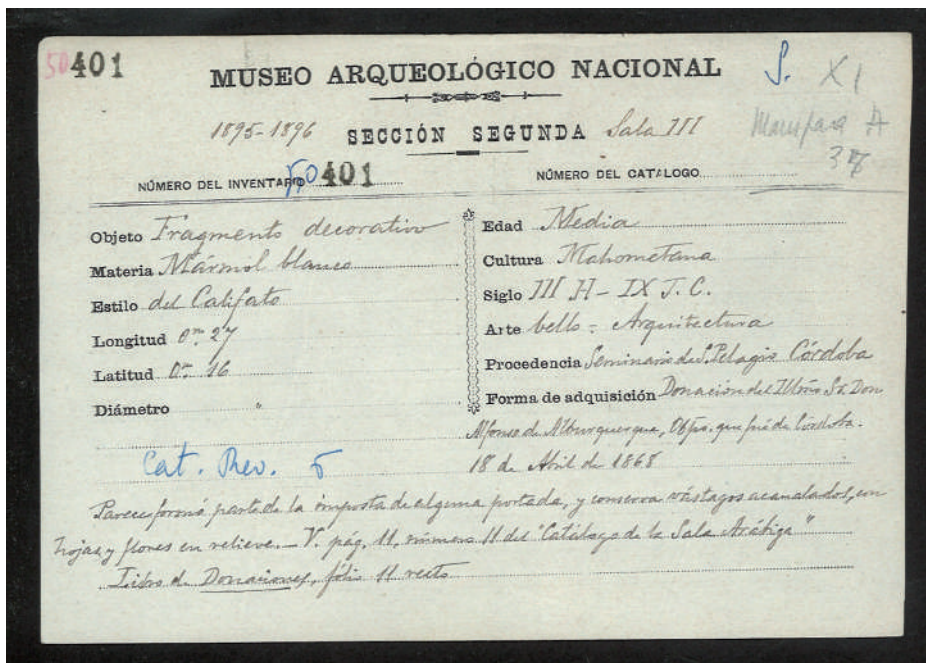 50401
MUSEO ARQUEOLÓGICO NACIONAL
S. XI
1895-1896 SECCIÓN SEGUNDA Sala III
A
NÚMERO DEL INVENTARIO 50401
NÚMERO DEL CATÁLOGO
Objeto Fragmento decorativo
Materia Mármol blanco
Estilo del Califato
Longitud 0m 27
Latitud 0m 16
Diámetro "
Cat. Rev. 5
Edad Media
Cultura Mahometana
Siglo III H - IX J. C.
Arte bello = Arquitectura
Procedencia Seminario de S. Pelagio Córdoba
Forma de adquisición Donación del Illmo Sr. Don
Alfonso de Alburquerque, Obpo. que fué de Córdoba.
18 de Abril de 1868
Parece formó parte de la imposta de alguna portada, y conserva vástagos acanalados, con
hojas y flores en relieve. — V. pág. 11, número 11 del "Catálogo de la Sala Arábiga"
Libro de Donaciones, fólio 11 recto